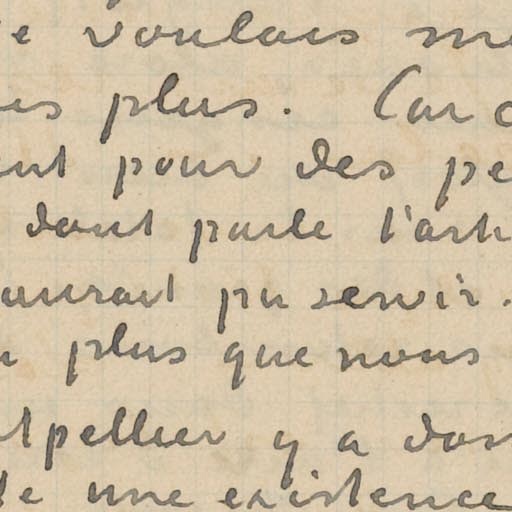 voulais
plus. Car
pour des
dont parle l'art
aurait pu servir.
plus que nous
tpellier y a don
une existence